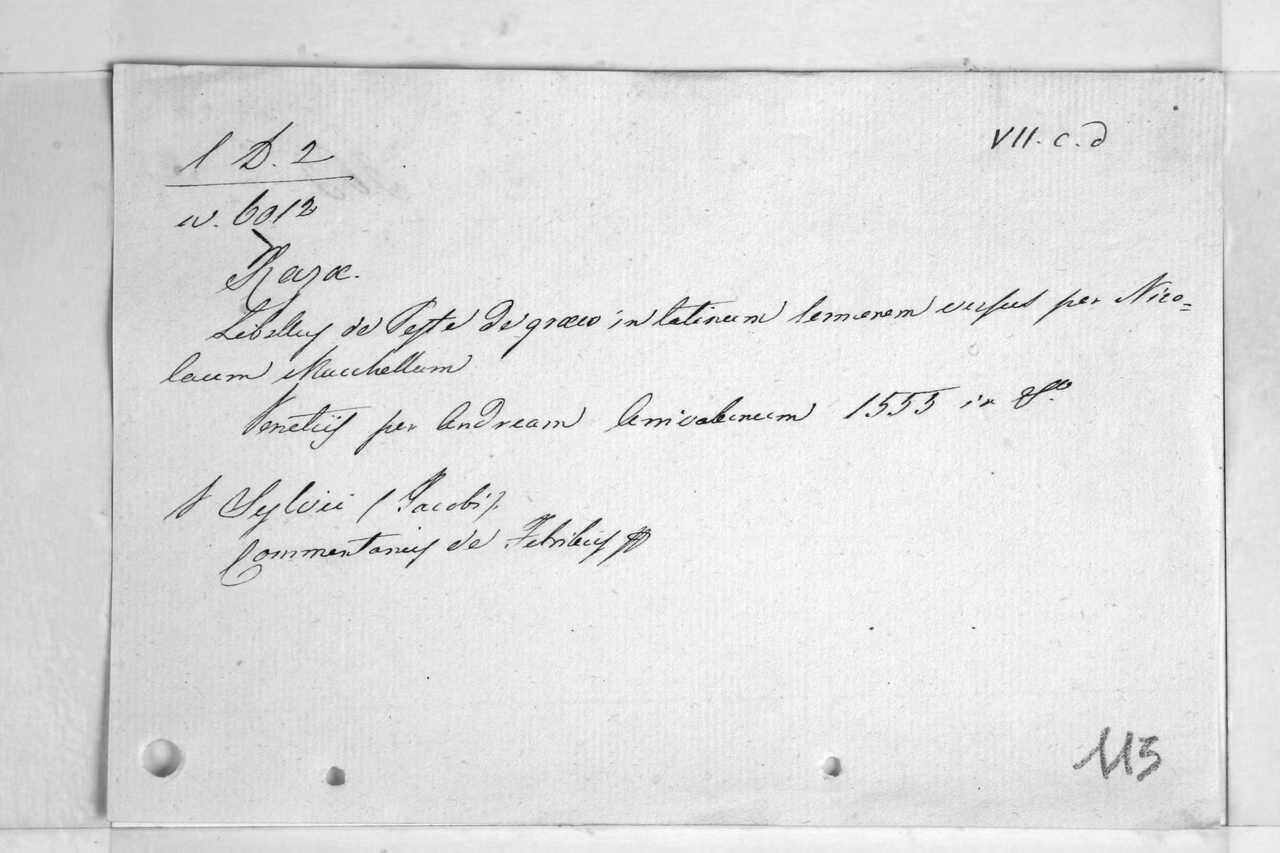 1 D. 2
VII. c. d
w. 6012
Razæ.
Libellus de Peste de græco in latinum sermonem versus per Nico=
laum Macchellum
Venetiis per Andream Arrivabenum 1555 in 8vo.
Sylvii (Jacobi).
Commentarius de Febribus
113